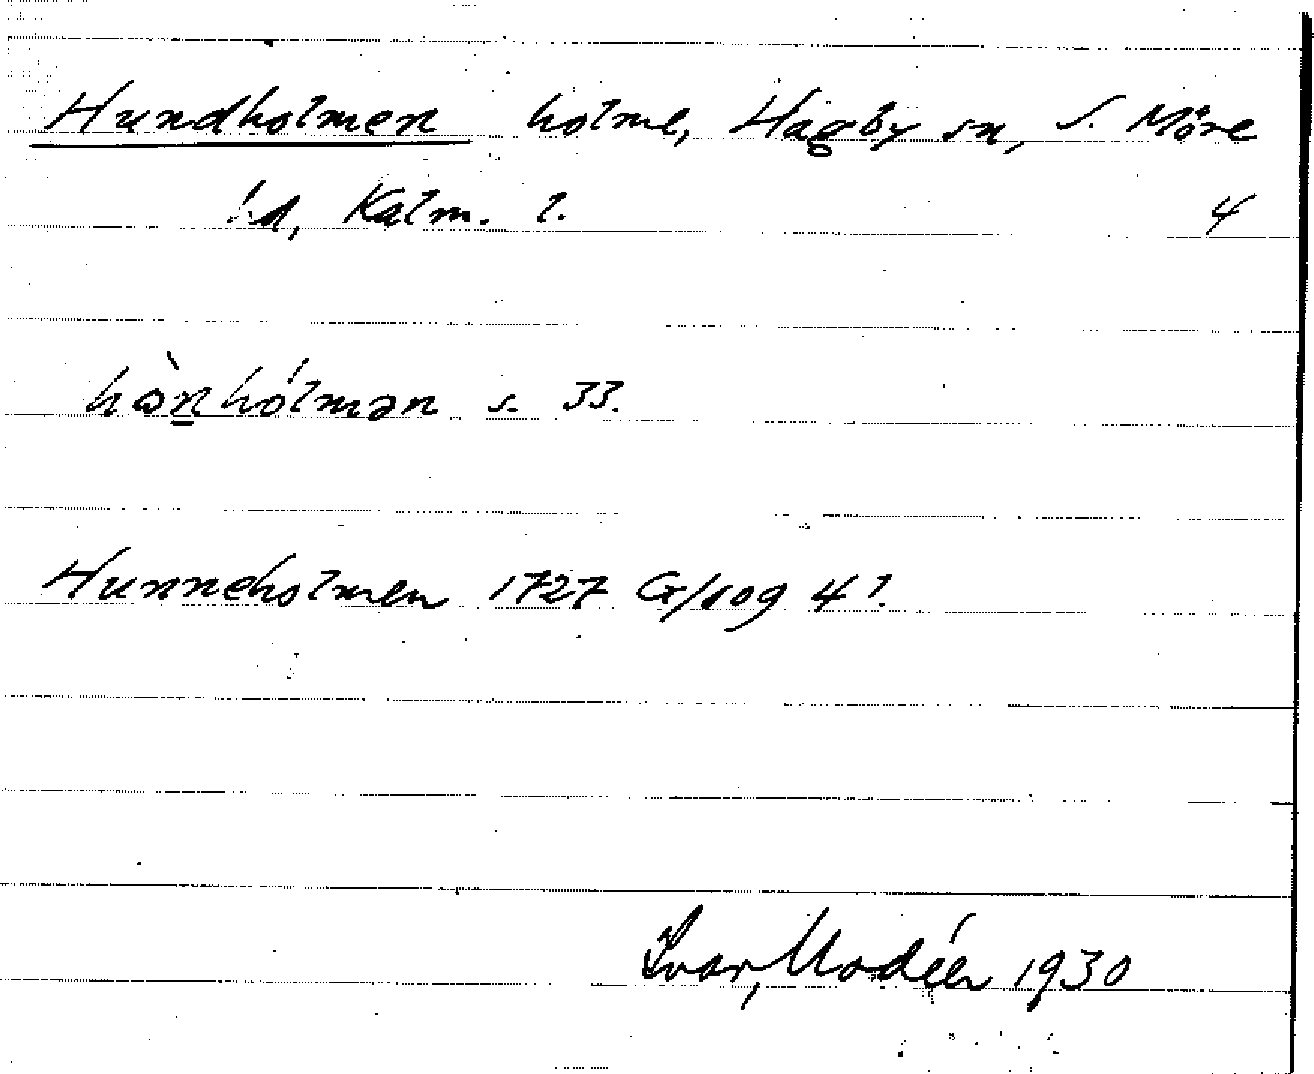 Hundholmen holme, Hagby sn, S. Möre
hd, Kalm. l. 4
hòn̲hólmən s. 33.
Hunneholmen 1727 G/109 4¹.
Ivar Modéer 1930